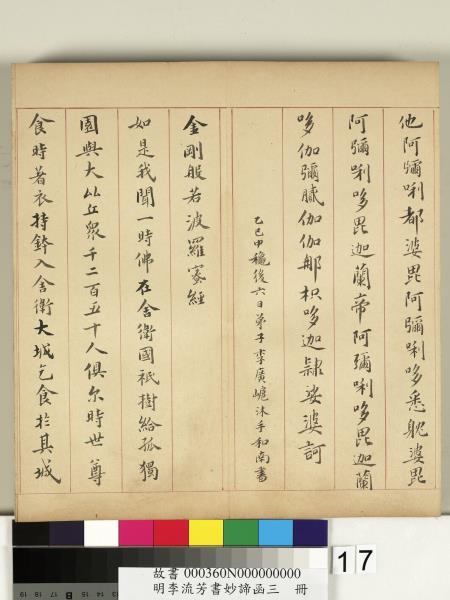 他阿彌唎都婆毘阿彌唎哆悉耽婆毘
阿彌唎哆毘迦蘭帝阿彌唎哆毘迦蘭
哆伽彌膩伽伽那枳哆迦隸娑婆訶
乙巳中穐後六日弟子李廣嶬沐手和南書
金剛般若波羅蜜經
如是我聞一時佛在舍衛國祇樹給孤獨
園與大比丘衆千二百五十人俱尔時世尊
食時著衣持鉢入舍衛大城乞食於其城
17
故書 000360N000000000
明李流芳書妙諦函三 冊